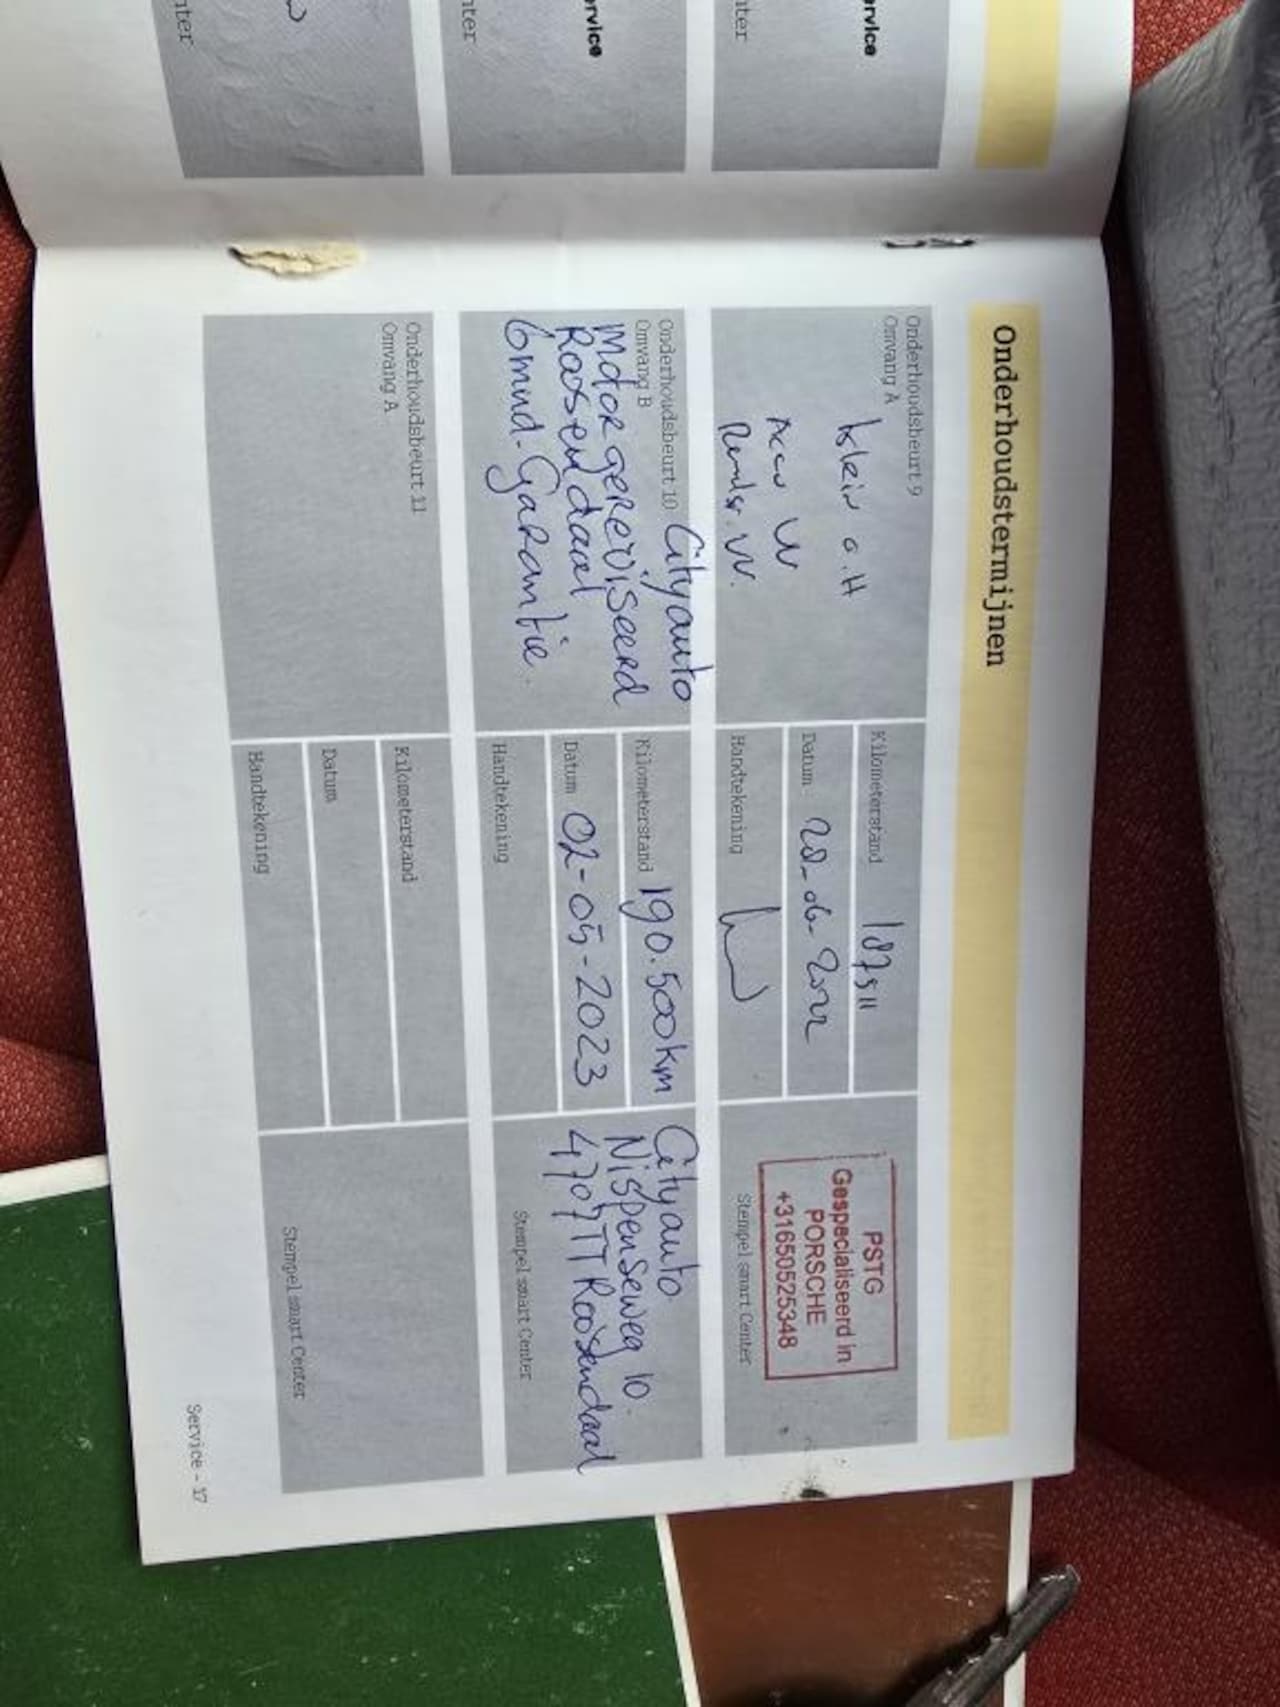 rvice
nter
ervice
nter
nter
Onderhoudstermijnen
Onderhoudsbeurt 9
Omvang A
Klein O.H
Accu VV
Remlsr. VV.
Kilometerstand 187511
Datum 28-06-2022
Handtekening
PSTG
Gespecialiseerd in
PORSCHE
+31650525348
Stempel smart Center
Onderhoudsbeurt 10
Omvang B
Cityauto
Motor gereviseerd
Roosendaal
6mnd. Garantie.
Kilometerstand 190.500km
Datum 02-05-2023
Handtekening
Cityauto
Nispenseweg 10.
4707TT Roosendaal
Stempel smart Center
Onderhoudsbeurt 11
Omvang A
Kilometerstand
Datum
Handtekening
Stempel smart Center
Service - 17